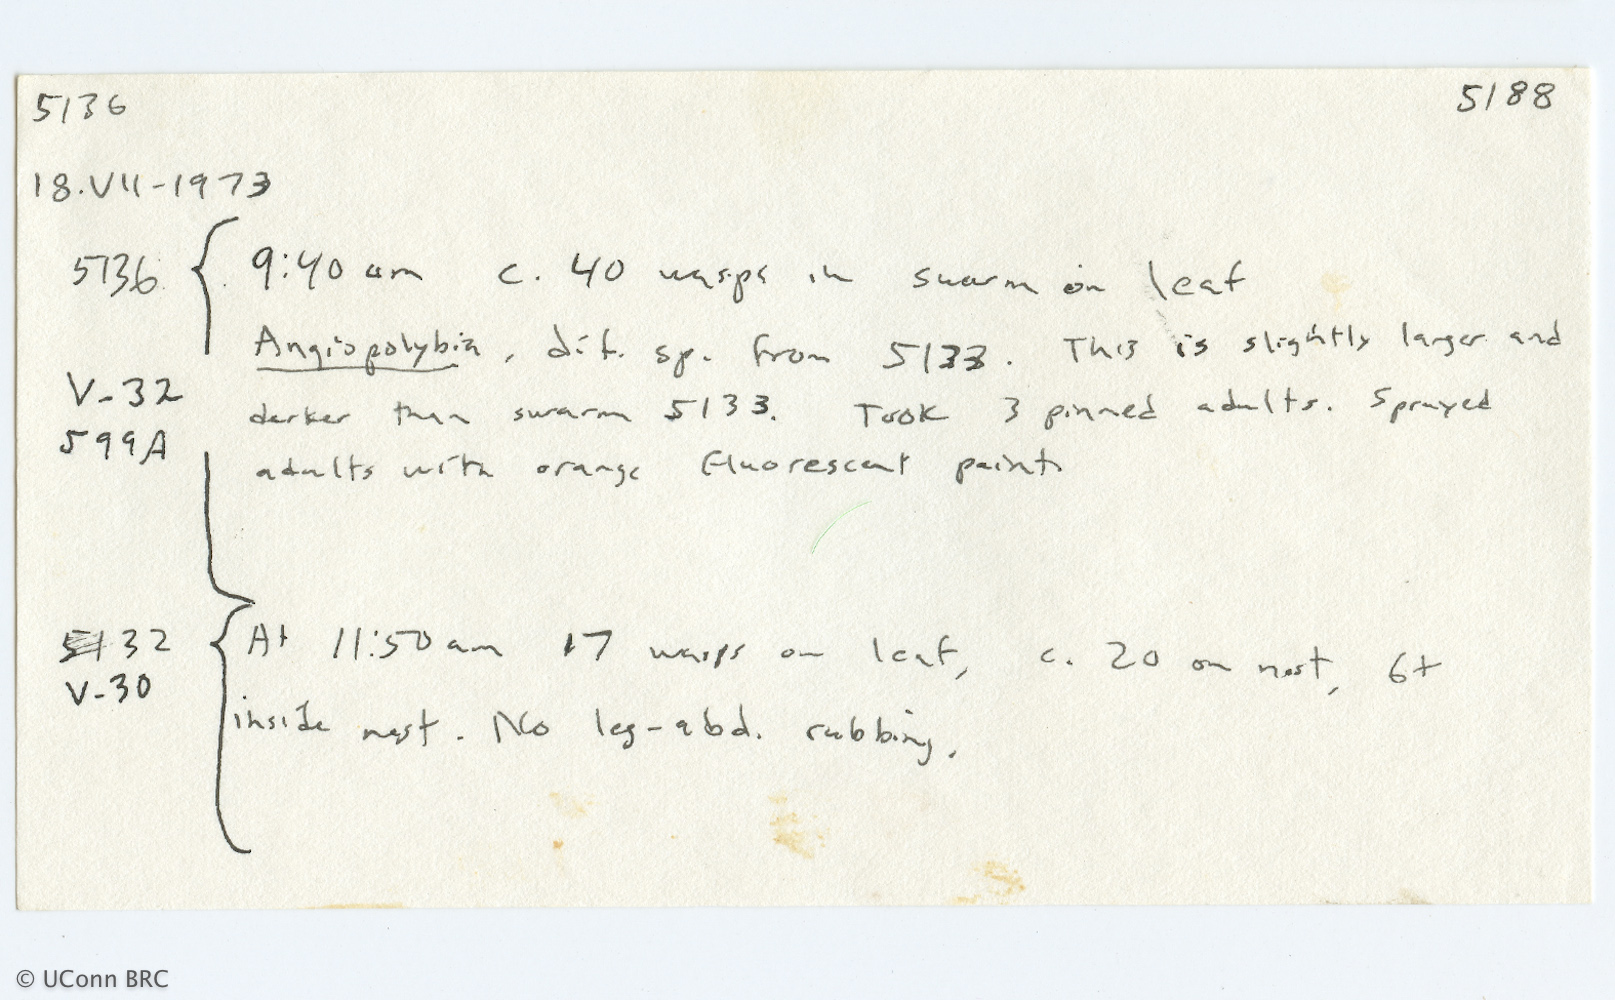 5136 5188
18.VII-1973
5136 9:40 am c. 40 wasps in swarm on leaf
Angiopolybia, dif. sp. from 5133. This is slightly larger and
V-32 darker than swarm 5133. Took 3 pinned adults. Sprayed
599A adults with orange fluorescent paint
5132 At 11:50 am 17 wasps on leaf, c. 20 on nest, 6+
V-30
inside nest. No leg-abd. rubbing.
© UConn BRC